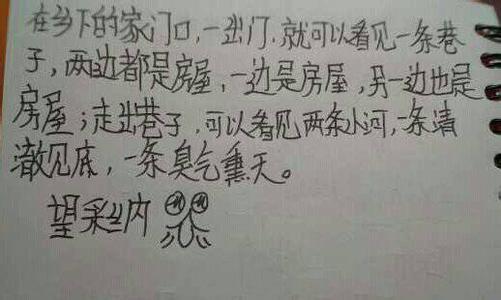 在乡下的家门口,一出门,就可以看见一条巷
子,两边都是房屋,一边是房屋,另一边也是
房屋;走出巷子,可以看见两条小河,一条清
澈见底,一条臭气熏天。
望采纳